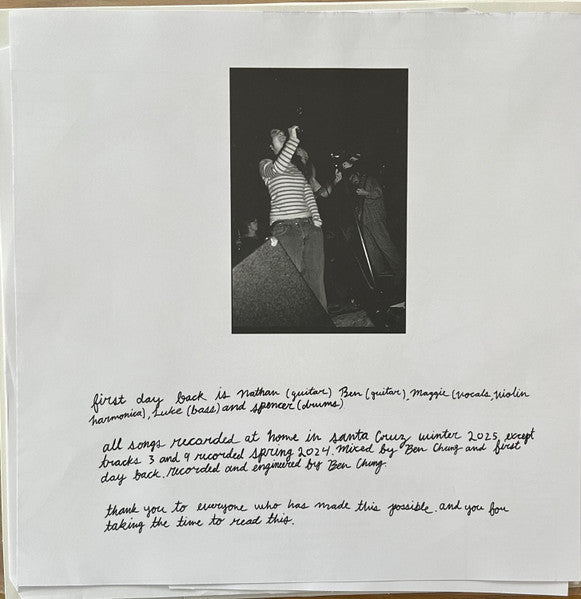 first day back is Nathan (guitar) Ben (guitar), Maggie (vocals, violin
harmonica), Luke (bass) and spencer (drums)
all songs recorded at home in santa cruz winter 2025, except
tracks 3 and 9 recorded spring 2024. mixed by Ben Chung and first
day back. recorded and engineered by Ben Chung.
thank you to everyone who has made this possible. and you for
taking the time to read this.